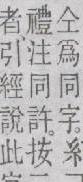 仝爲同字。
禮注同同許。按
者引經說此